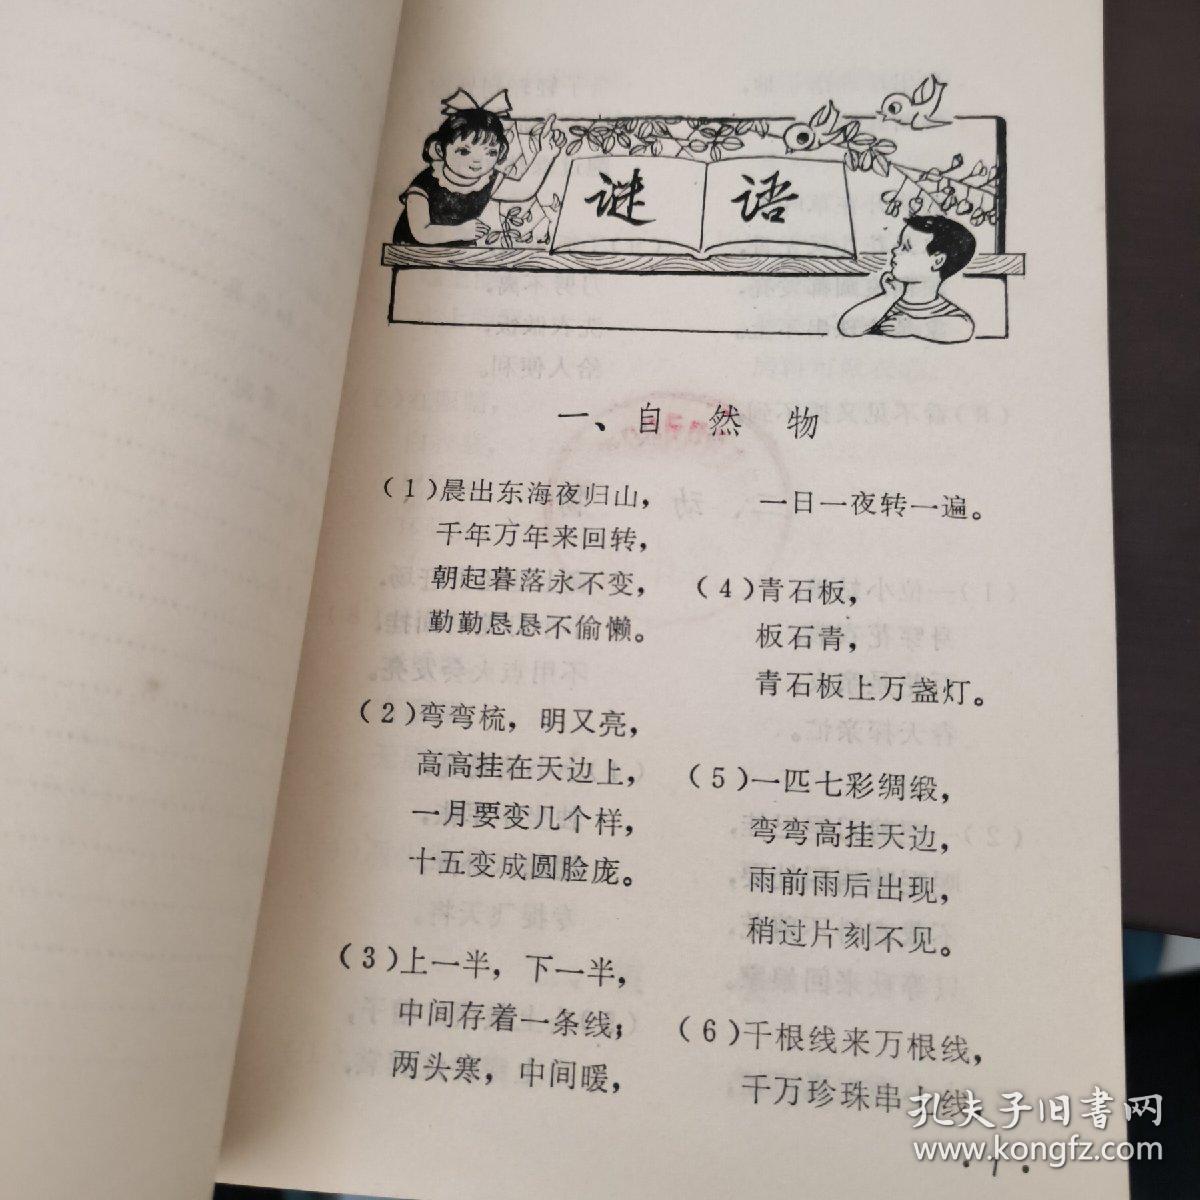 谜语
一、自然物
（1）晨出东海夜归山，
千年万年来回转，
朝起暮落永不变，
勤勤恳恳不偷懒。
（2）弯弯梳，明又亮，
高高挂在天边上，
一月要变几个样，
十五变成圆脸庞。
（3）上一半，下一半，
中间存着一条线；
两头寒，中间暖，
一日一夜转一遍。
（4）青石板，
板石青，
青石板上万盏灯。
（5）一匹七彩绸缎，
弯弯高挂天边，
雨前雨后出现，
稍过片刻不见。
（6）千根线来万根线，
千万珍珠串上线
·1·
孔夫子旧书网
www.kongfz.com